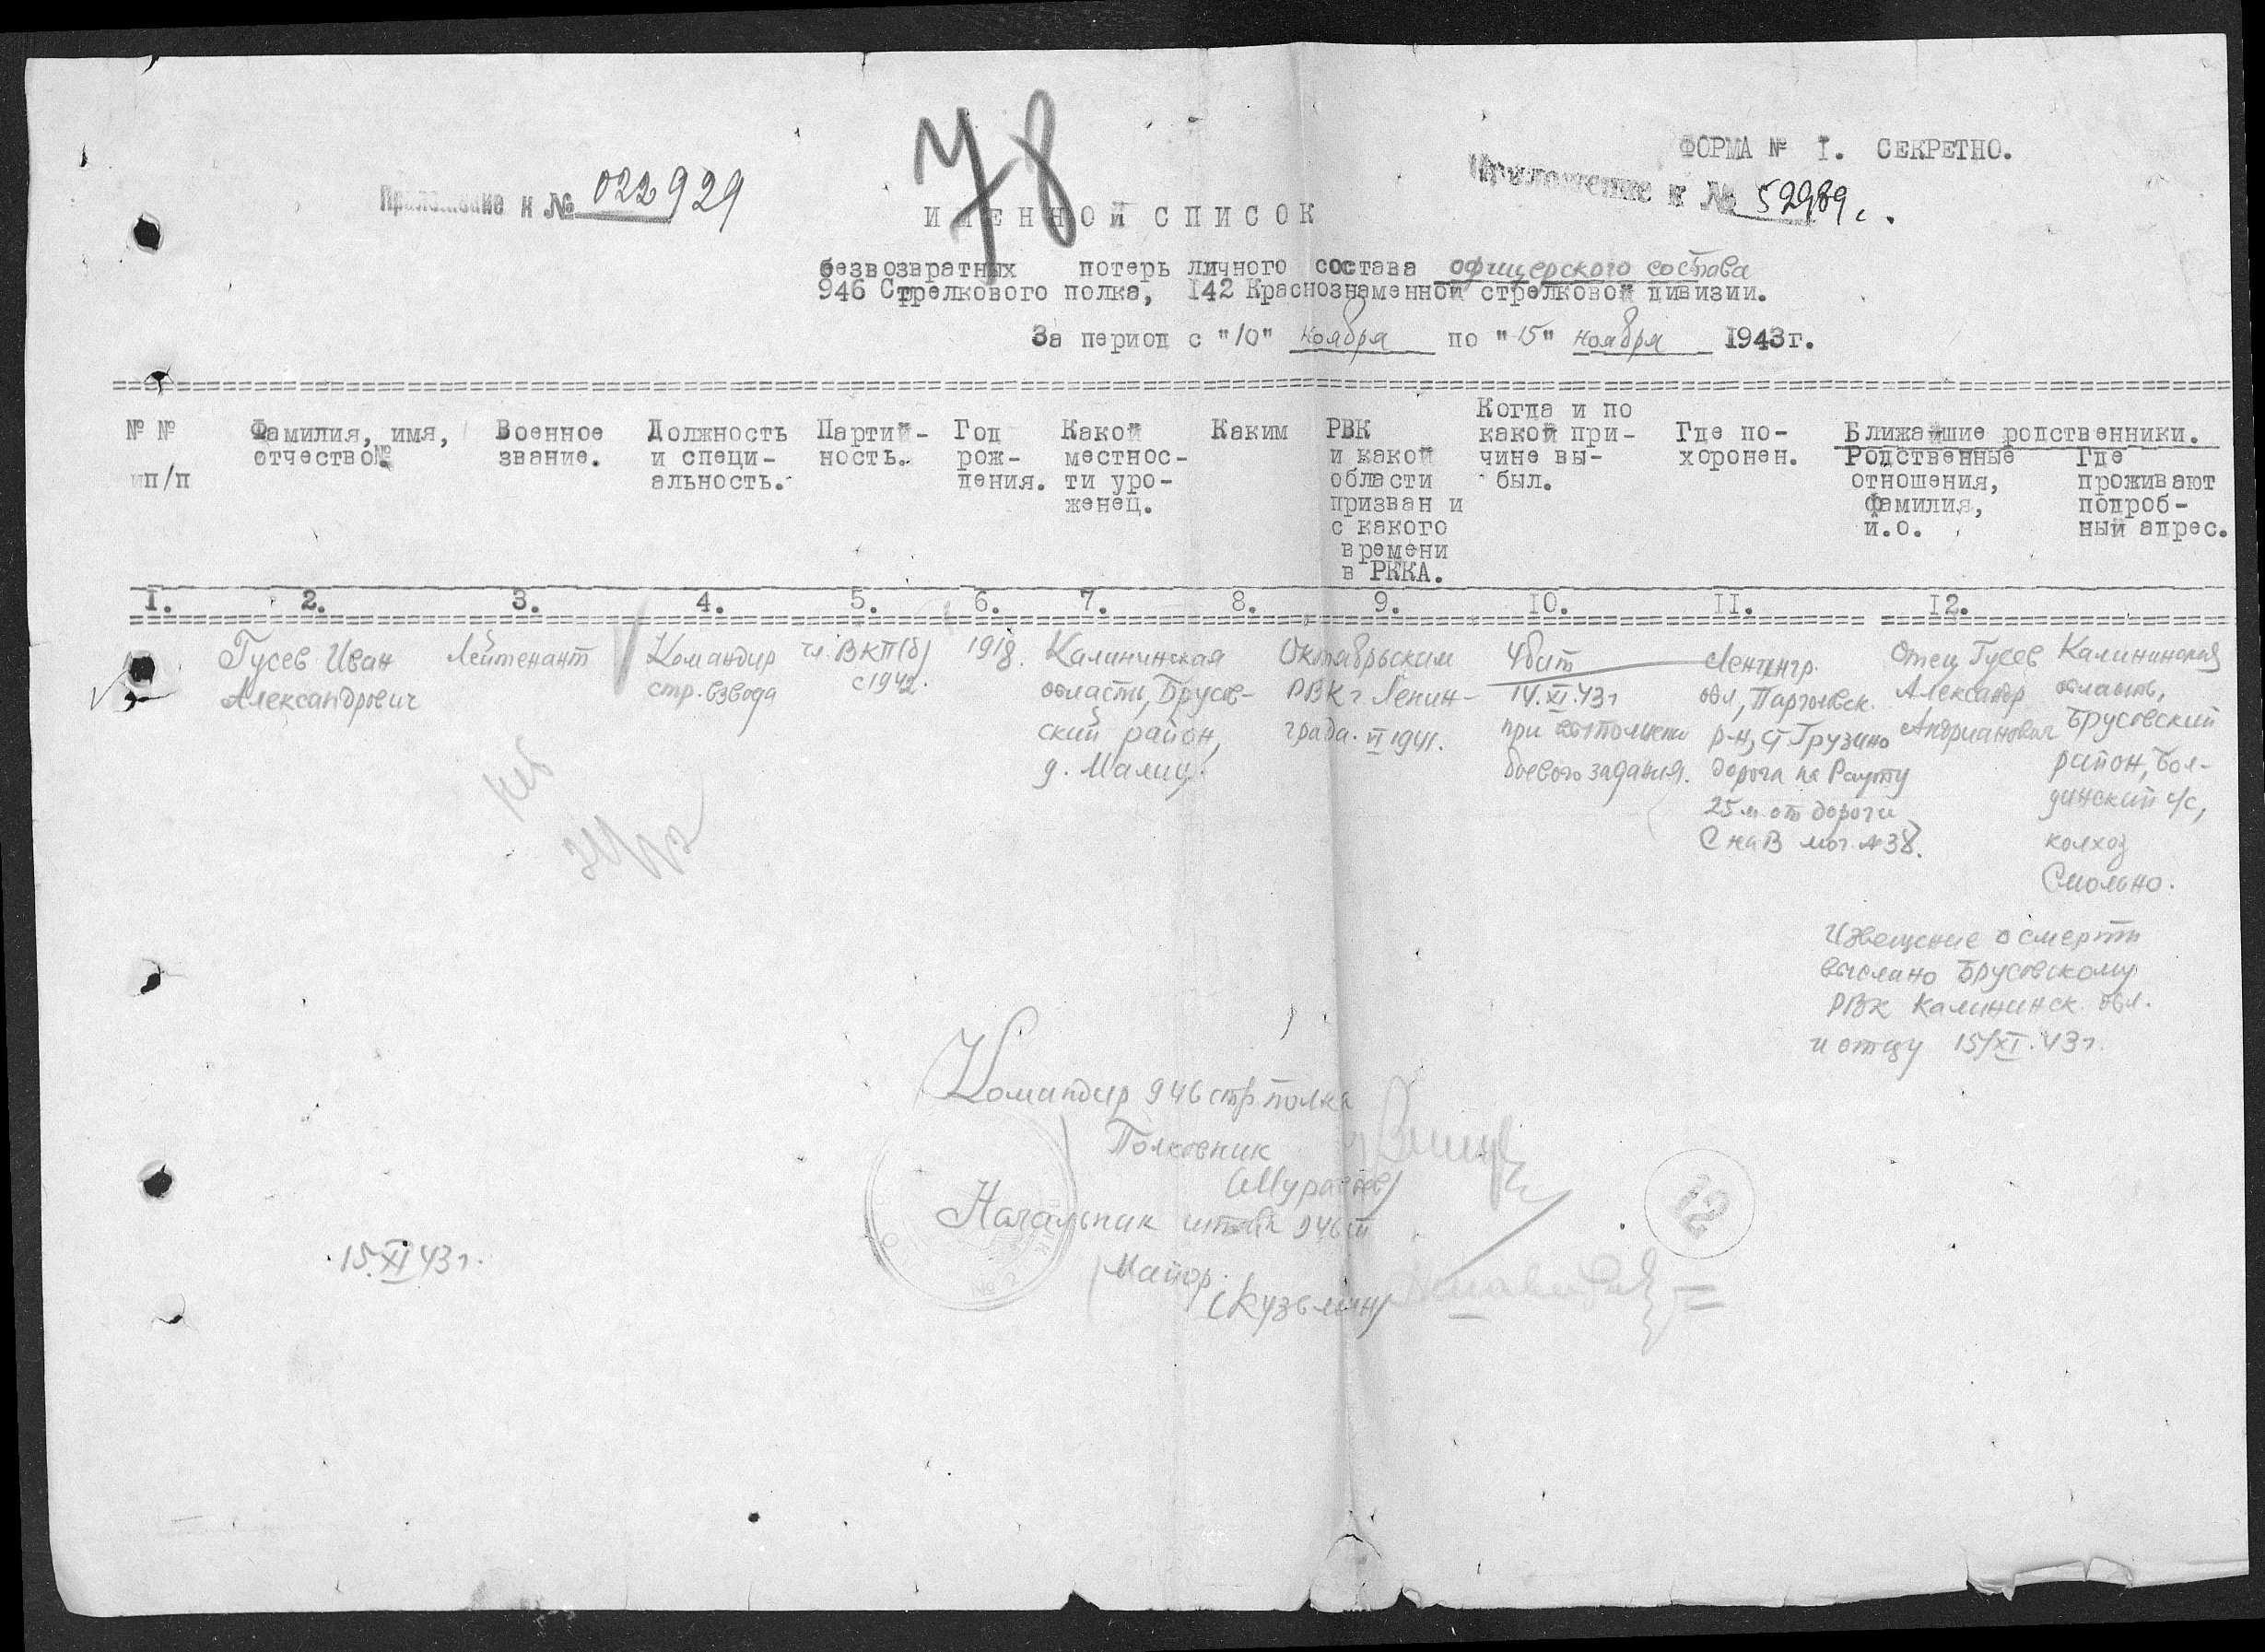 78
ФОРМА № I. СЕКРЕТНО.
Приложение к № 022929
Приложение к № 52989с.
ИМЕННОЙ СПИСОК
безвозвратных потерь личного состава офицерского состава
946 Стрелкового полка, 142 Краснознаменной стрелковой дивизии.
За период с "10" ноября по "15" ноября 1943г.
№ № п/п
Фамилия, имя, отчество.
Военное звание.
Должность и специ- альность.
Партий- ность.
Год рож- дения.
Какой местнос- ти уро- женец.
Каким РВК и какой области призван и с какого времени в РККА.
Когда и по какой при- чине вы- был.
Где по- хоронен.
Ближайшие родственники.
Родственные отношения, фамилия, и.о.
Где проживают подроб- ный адрес.
I. 2. 3. 4. 5. 6. 7. 8. 9. I0. II. I2.
Гусев Иван
Александрович
Лейтенант
Командир
стр. взвода
чл. ВКП(б)
с 1942.
1918.
Калининская
область, Брусов-
ский район,
д. Малиц.
Октябрьским
РВК г Ленин-
града. VI 1941.
Убит
14.XI.43г
при выполнении
боевого задания.
Ленингр.
обл, Парголовск.
р-н, ст Грузино
дорога на Раутту
25 м от дороги
С на В мог. №38.
Отец Гусев
Александр
Андрианович
Калининская
область,
Брусовский
район, Бол-
динский с/с,
колхоз
Смольно.
Извещение о смерти
выслано Брусовскому
РВК Калининск. обл.
и отцу 15/XI.43г.
Командир 946 стр полка
Полковник
(Муравьев)
Начальник штаба 946 сп
Майор.
(Кузьмин)
15.XI 43г.
12